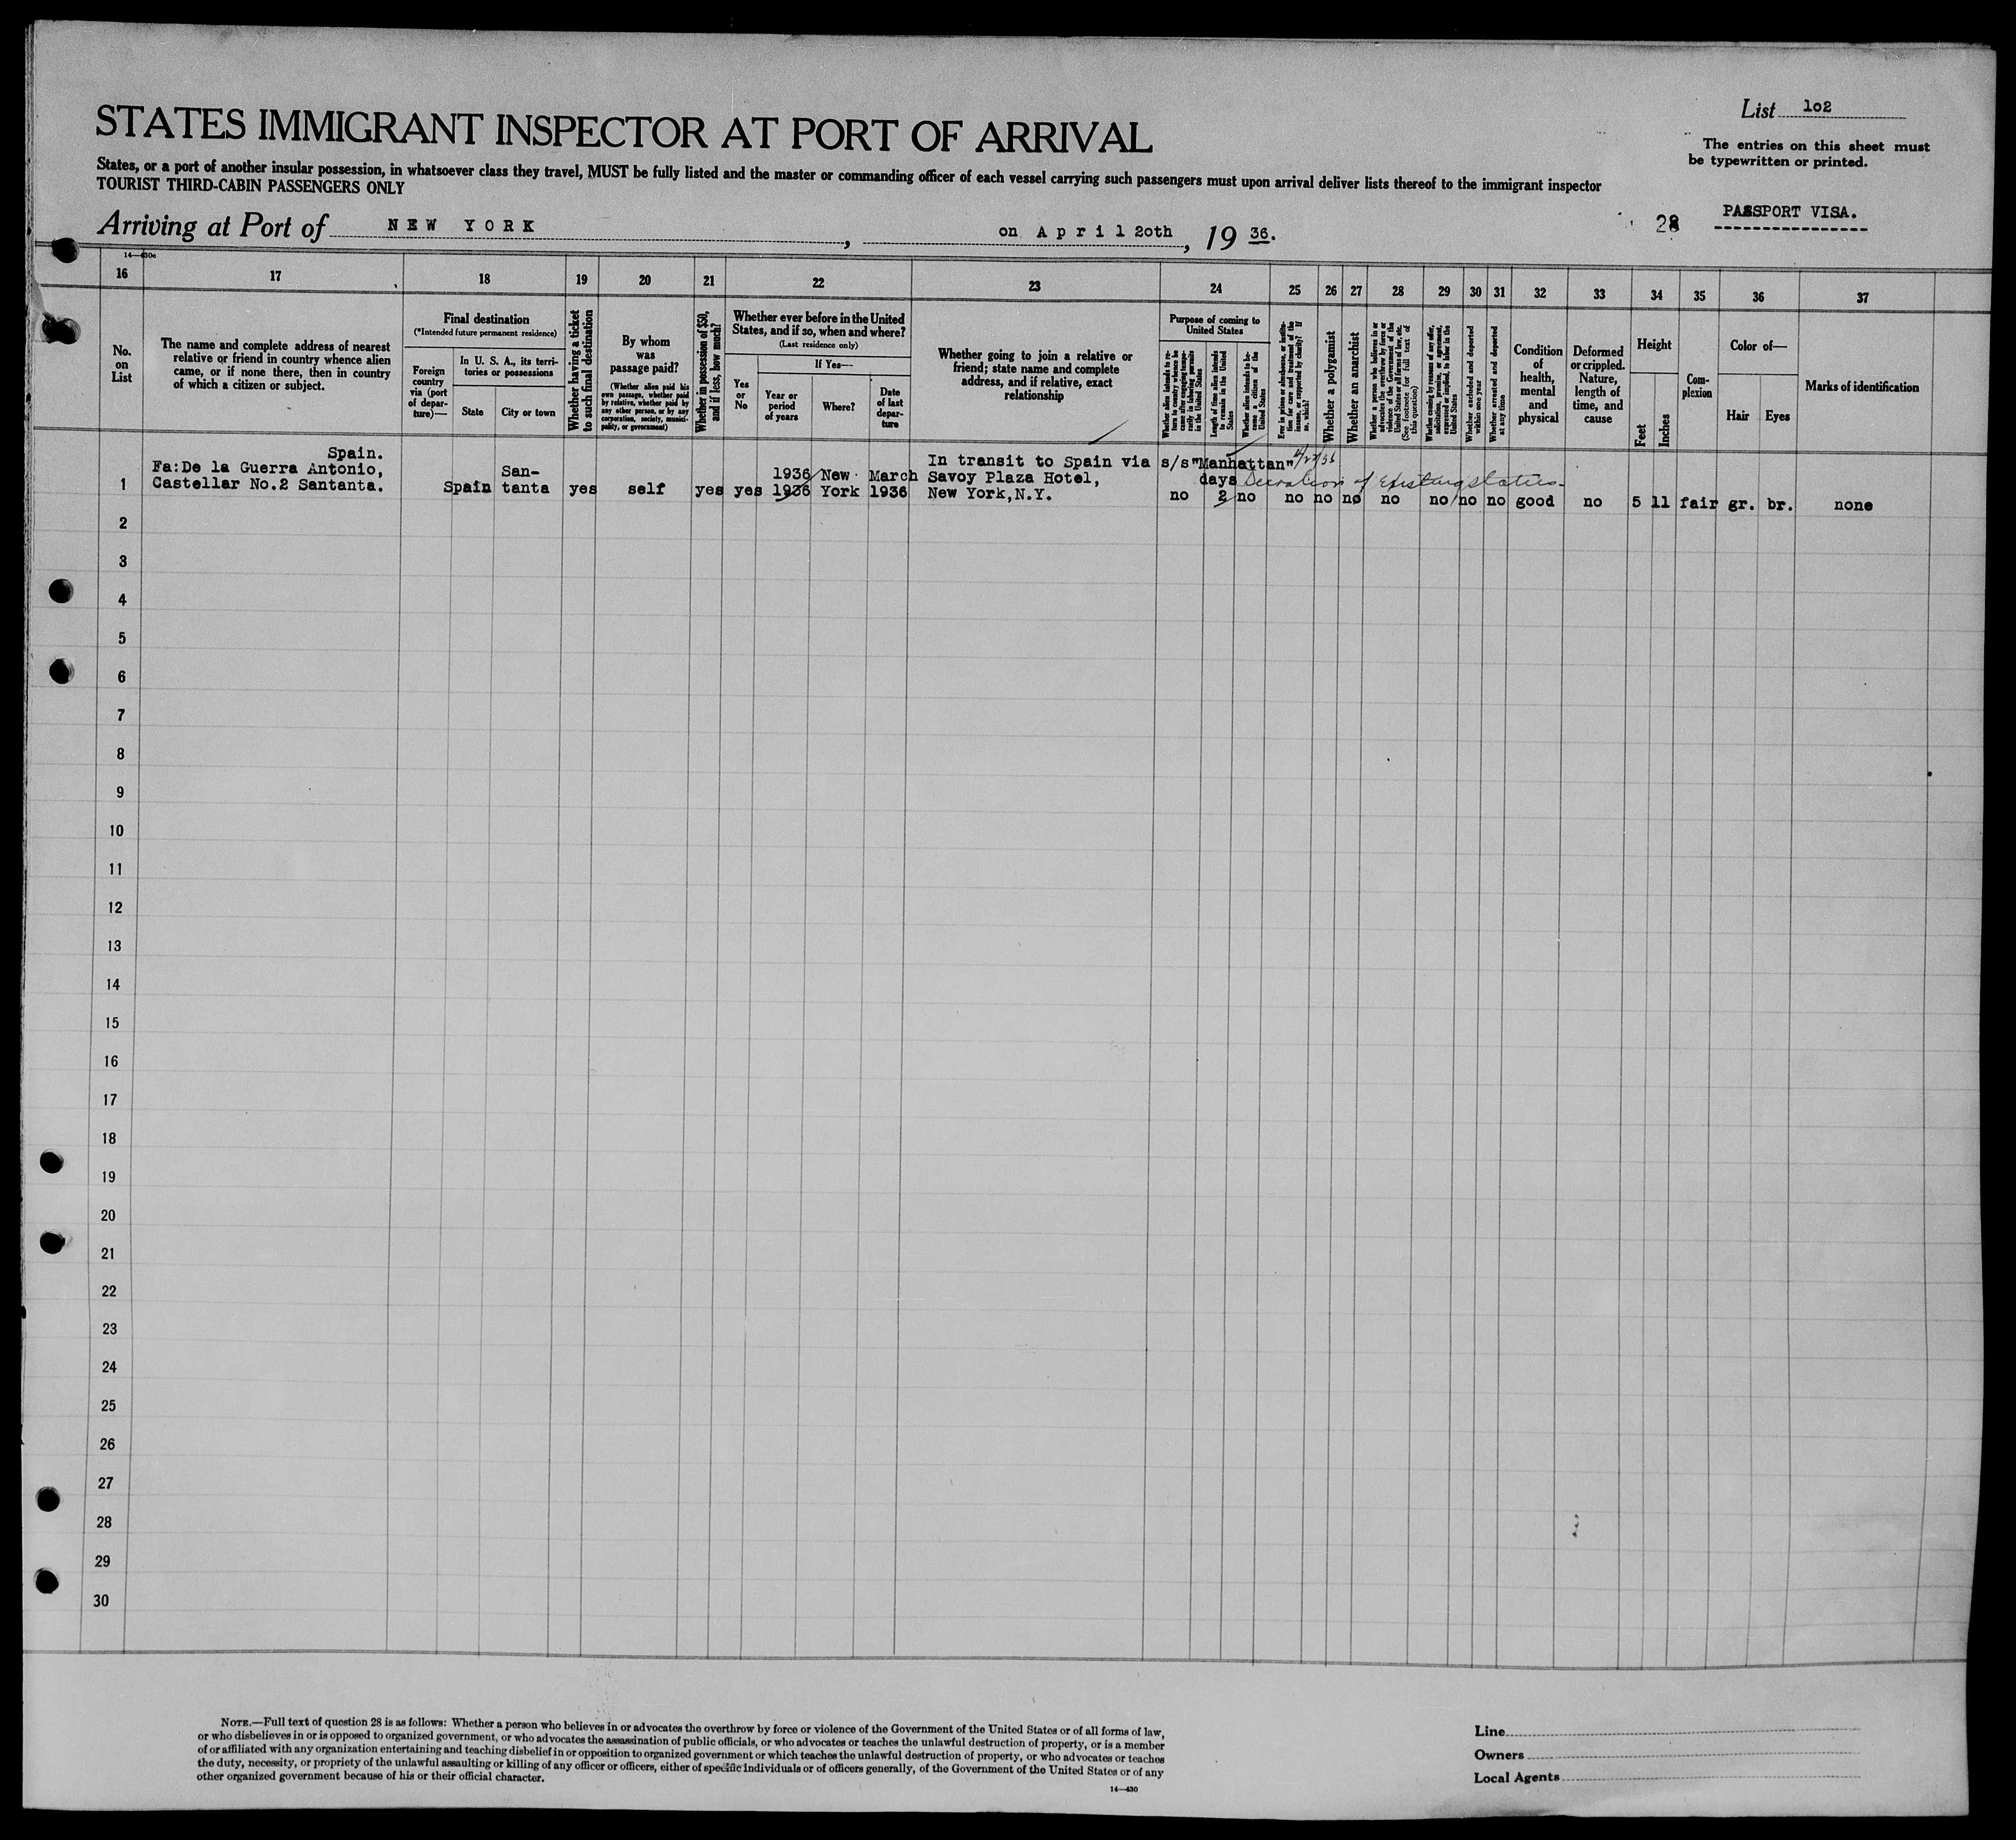 List 1o2
STATES IMMIGRANT INSPECTOR AT PORT OF ARRIVAL
The entries on this sheet must
be typewritten or printed.
States, or a port of another insular possession, in whatsoever class they travel, MUST be fully listed and the master or commanding officer of each vessel carrying such passengers must upon arrival deliver lists thereof to the immigrant inspector
TOURIST THIRD-CABIN PASSENGERS ONLY
PASSPORT VISA.
28
Arriving at Port of NEW YORK, on April 2oth, 19 36.
16 17 18 19 20 21 22 23 24 25 26 27 28 29 30 31 32 33 34 35 36 37
No.
on
List
The name and complete address of nearest
relative or friend in country whence alien
came, or if none there, then in country
of which a citizen or subject.
Final destination
(*Intended future permanent residence)
Foreign
country
via (port
of depar-
ture)—
In U. S. A., its terri-
tories or possessions
State
City or town
Whether having a ticket
to such final destination
By whom
was
passage paid?
(Whether alien paid his
own passage, whether paid
by relative, whether paid by
any other person, or by any
corporation, society, munici-
pality, or government)
Whether in possession of $50,
and if less, how much?
Whether ever before in the United
States, and if so, when and where?
(Last residence only)
Yes
or
No
If Yes—
Year or
period
of years
Where?
Date
of last
depar-
ture
Whether going to join a relative or
friend; state name and complete
address, and if relative, exact
relationship
Purpose of coming to
United States
Whether alien intends to re-
turn to country whence he
came after engaging tempo-
rarily in laboring pursuits
in the United States
Length of time alien intends
to remain in the United
States
Whether alien intends to be-
come a citizen of the
United States
Ever in prison or almshouse, or institu-
tion for care and treatment of the
insane, or supported by charity? If
so, which?
Whether a polygamist
Whether an anarchist
Whether a person who believes in or
advocates the overthrow by force or
violence of the Government of the
United States or all forms of law, etc.
(See footnote for full text of
this question)
Whether coming by reason of any offer,
solicitation, promise, or agreement,
expressed or implied, to labor in the
United States
Whether excluded and deported
within one year
Whether arrested and deported
at any time
Condition
of
health,
mental
and
physical
Deformed
or crippled.
Nature,
length of
time, and
cause
Height
Feet
Inches
Com-
plexion
Color of—
Hair
Eyes
Marks of identification
Spain.
Fa:De la Guerra Antonio,
Castellar No.2 Santanta.
1 Spain San-
tanta yes self yes yes 1936 1936 New York March 1936
In transit to Spain via s/s"Manhattan" 4/22/36
Savoy Plaza Hotel, days Duration of existing status.
New York,N.Y. no 2 no no no no no no no no good no 5 11 fair gr. br. none
2
3
4
5
6
7
8
9
10
11
12
13
14
15
16
17
18
19
20
21
22
23
24
25
26
27
28
29
30
NOTE.—Full text of question 28 is as follows: Whether a person who believes in or advocates the overthrow by force or violence of the Government of the United States or of all forms of law,
or who disbelieves in or is opposed to organized government, or who advocates the assassination of public officials, or who advocates or teaches the unlawful destruction of property, or is a member
of or affiliated with any organization entertaining and teaching disbelief in or opposition to organized government or which teaches the unlawful destruction of property, or who advocates or teaches
the duty, necessity, or propriety of the unlawful assaulting or killing of any officer or officers, either of specific individuals or of officers generally, of the Government of the United States or of any
other organized government because of his or their official character.
14—430
Line
Owners
Local Agents